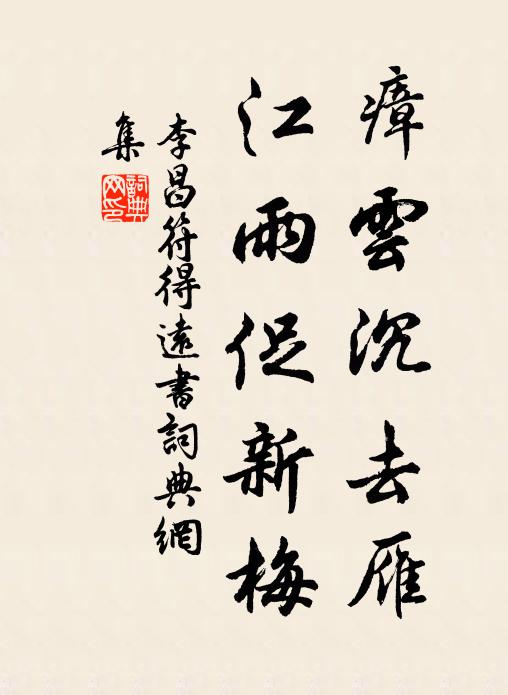 瘴雲沉去雁
江雨促新梅
李昌符得遠書詞典網
集
詞典
网印